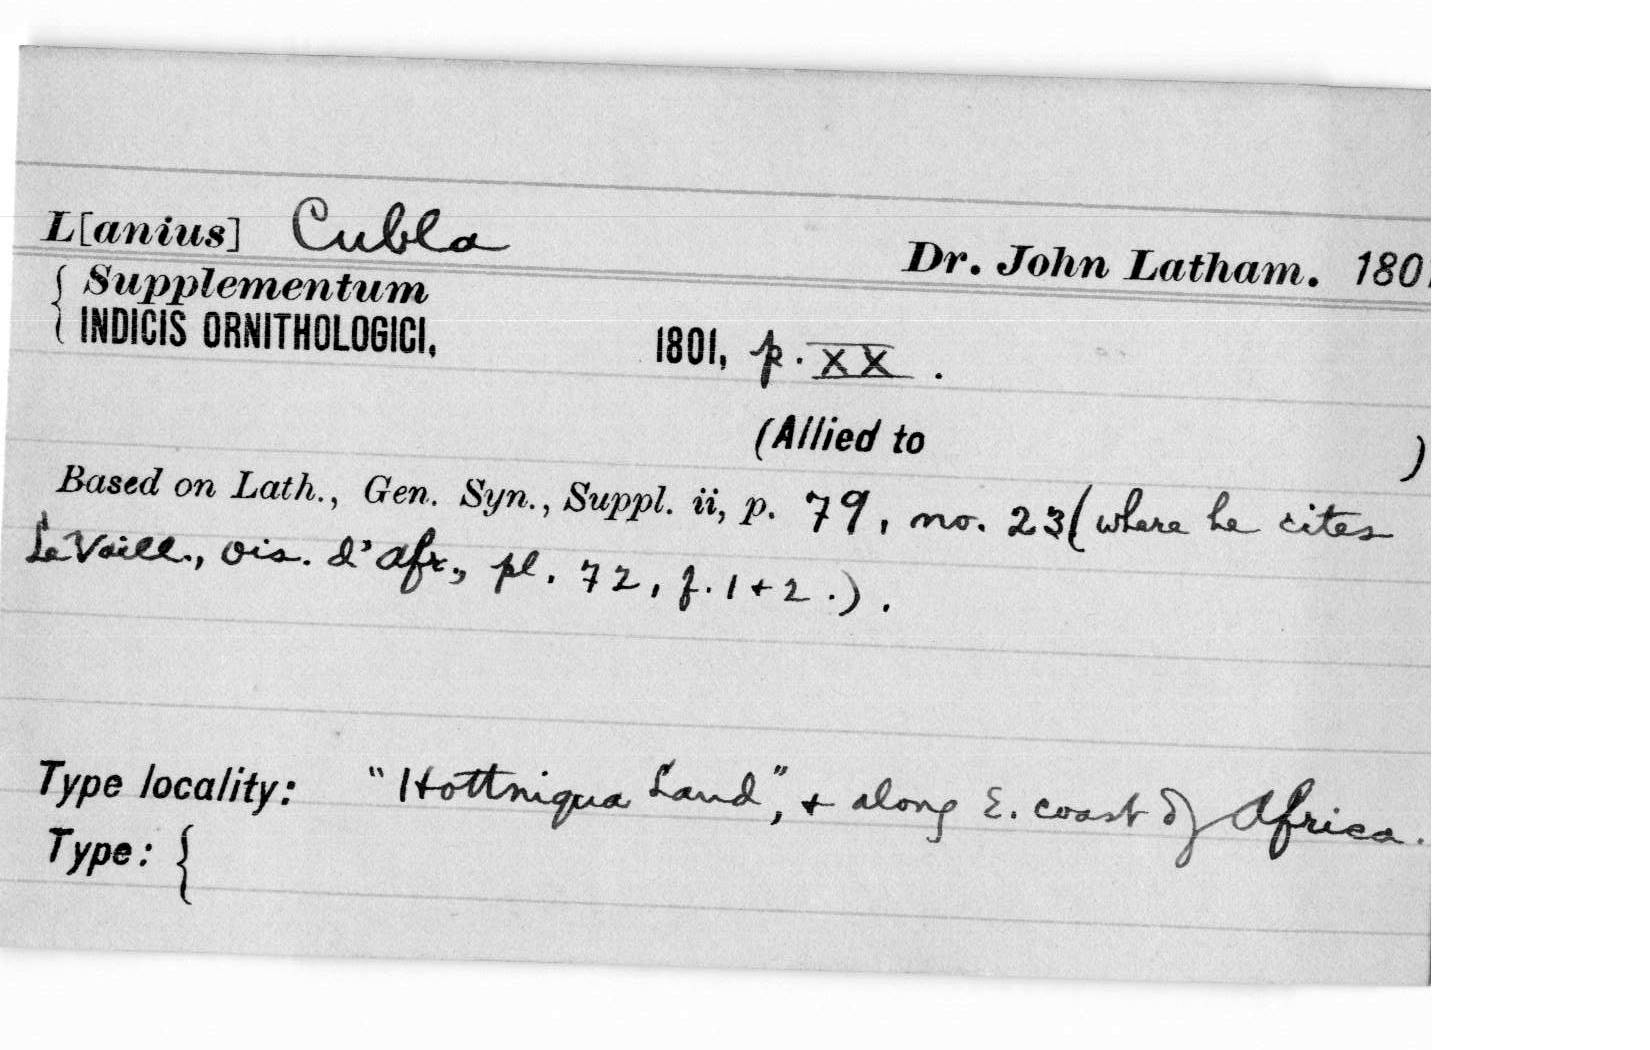 L[anius] Cubla
Dr. John Latham. 1801
{ Supplementum
INDICIS ORNITHOLOGICI, 1801, p. XX.
(Allied to )
Based on Lath., Gen. Syn., Suppl. ii, p. 79, no. 23 (where he cites
LeVaill., Ois. d'Afr., pl. 72, f. 1 + 2.).
Type locality: "Hottniqua Land", + along E. coast of Africa.
Type: {